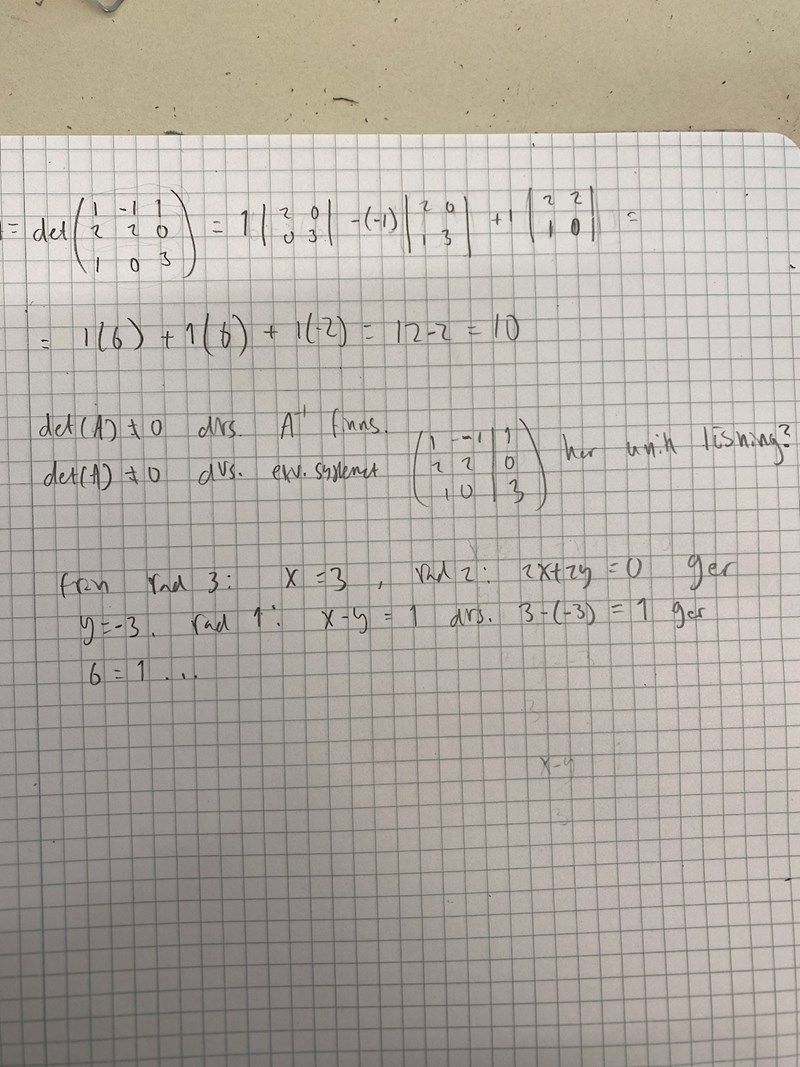 = det ( 1 -1 1 / 2 2 0 / 1 0 3 ) = 1 | 2 0 / 0 3 | -(-1) | 2 0 / 1 3 | +1 | 2 2 / 1 0 | =
= 1(6) + 1(6) + 1(-2) = 12-2 = 10
det(A) ≠ 0 dvs. A⁻¹ finns.
det(A) ≠ 0 dvs. ekv. systemet ( 1 -1 | 1 / 2 2 | 0 / 1 0 | 3 ) har unik lösning?
från rad 3: x = 3, rad 2: 2x+2y = 0 ger
y=-3. rad 1: x-y = 1 dvs. 3-(-3) = 1 ger
6 = 1 ...
x-y
3